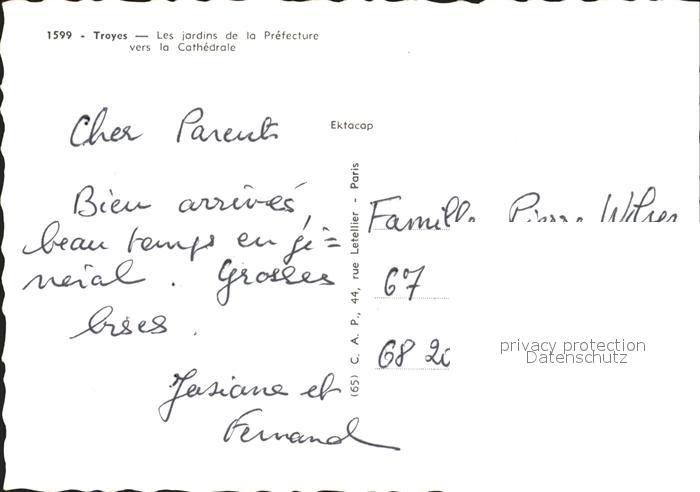 1599 - Troyes — Les jardins de la Préfecture
vers la Cathédrale
Cher Parents
Ektacap
Bien arrivés,
beau temps en gé=
neral. Grosses
bises.
Josiane et
Fernand
(65) C. A. P., 44, rue Letellier - Paris
Famille Pierre
67
68
privacy protection
Datenschutz